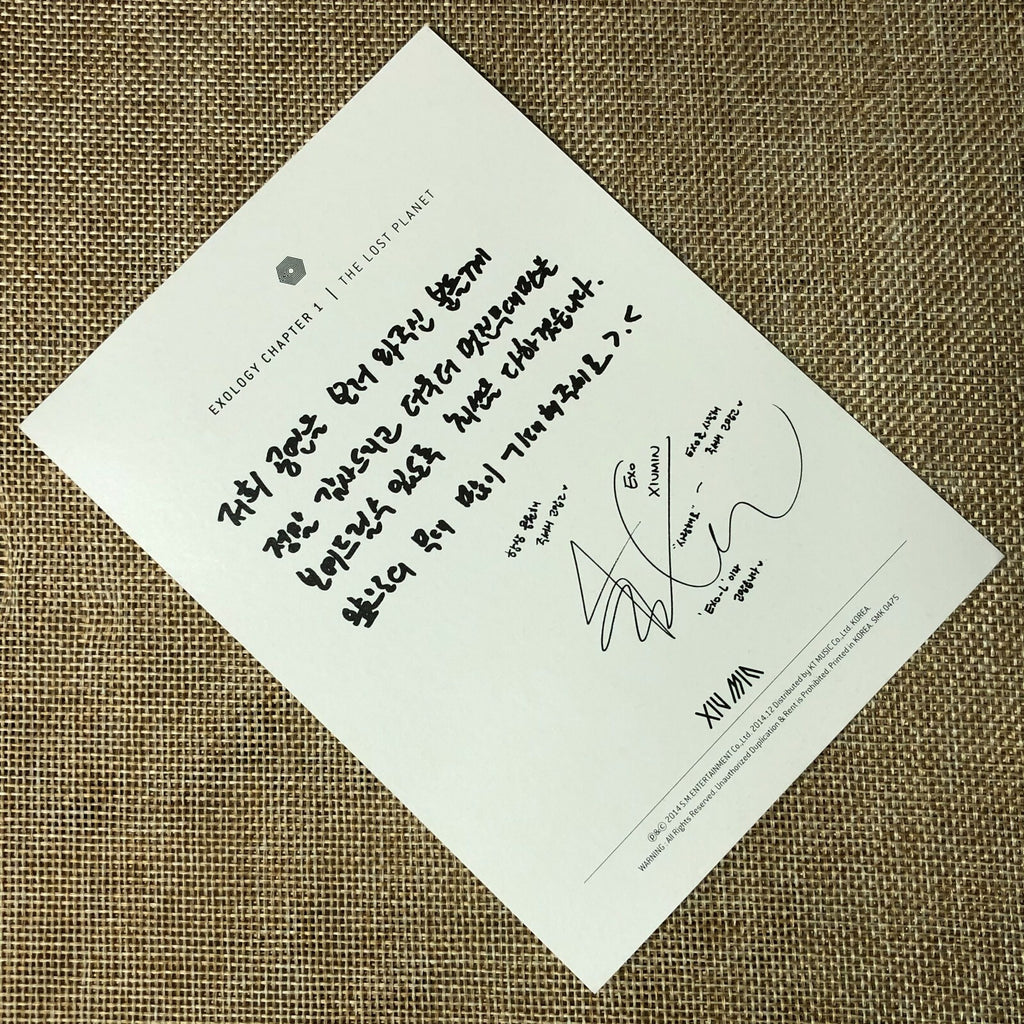 EXOLOGY CHAPTER 1 | THE LOST PLANET
저희 공연을 보러 와주신 분들께
정말 감사드리고 더욱더 멋진무대만을
보여드릴수 있도록 최선을 다하겠습니다.
앞으로의 무대 많이 기대해주세요 >.<
항상 응원해
주셔서 고맙고♥
EXO
XIUMIN
EXO를 사랑해
주셔서 고맙고♥
"사랑해요" ~
'EXO-L' 이라
고맙습니다♥
XIUMIN
℗&© 2014 S.M.ENTERTAINMENT Co.,Ltd. 2014.12 Distributed by KT MUSIC Co.,Ltd. KOREA.
WARNING : All Rights Reserved. Unauthorized Duplication & Rent is Prohibited. Printed in KOREA. SMK 0475